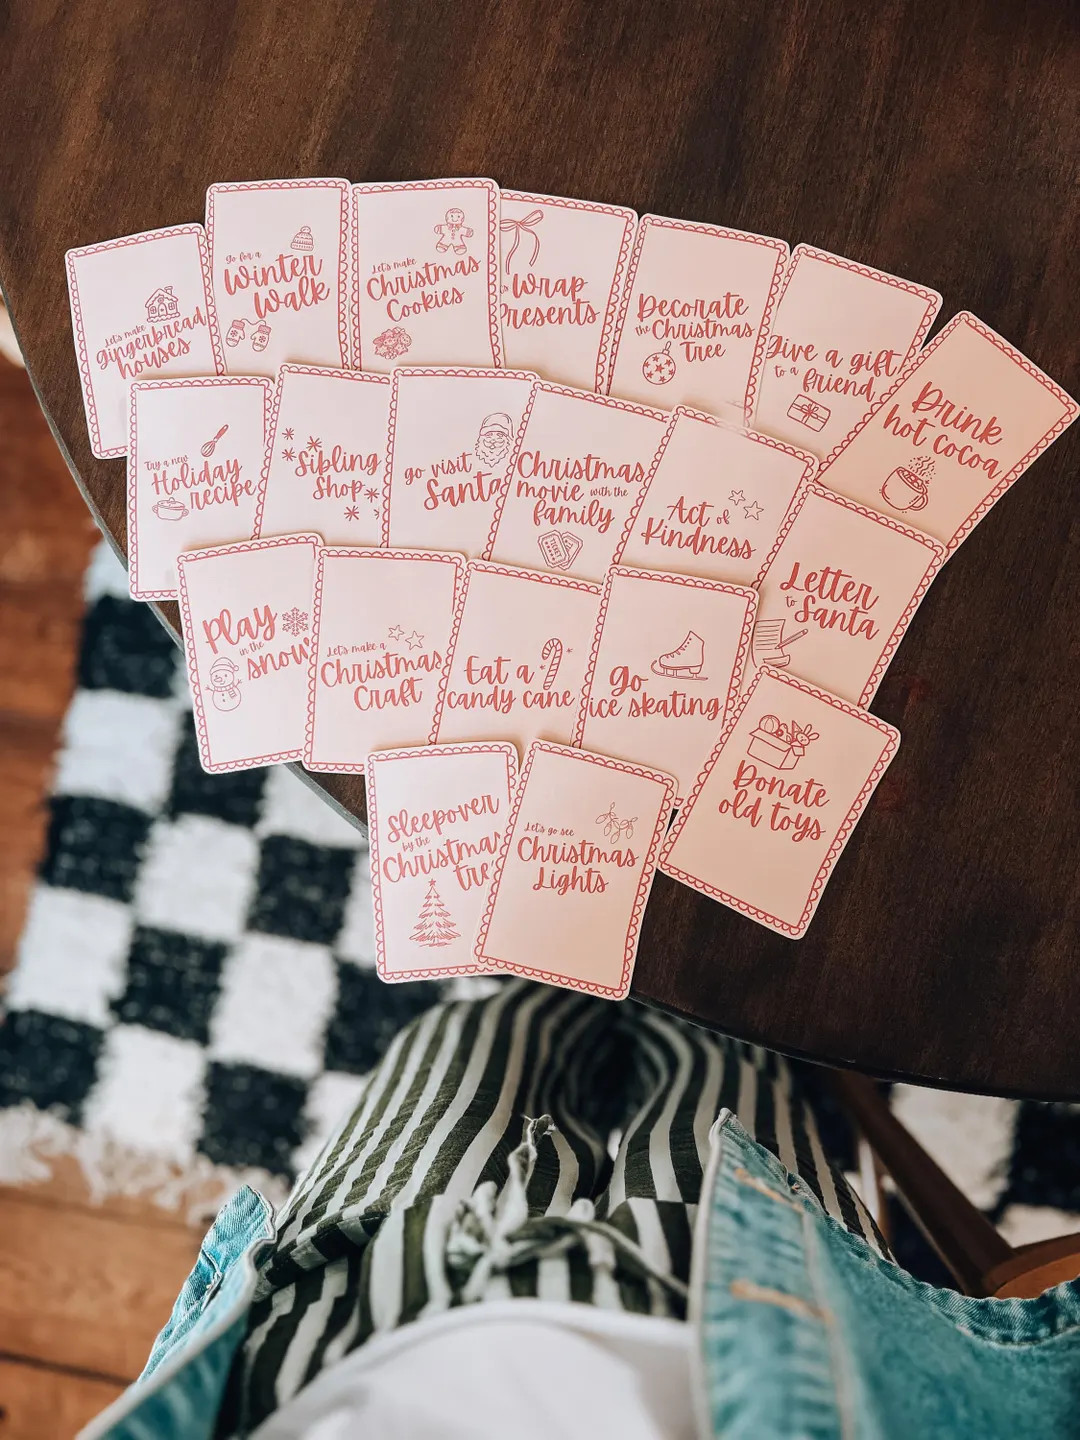 Let's make
gingerbread
houses
go for a
Winter
Walk
Let's make
Christmas
Cookies
Wrap
Presents
Decorate
the Christmas
Tree
Give a gift
to a friend
Drink
hot cocoa
Try a new
Holiday
recipe
Sibling
Shop
go visit
Santa
Christmas
movie with the
family
Act of
Kindness
Letter
to Santa
Play
in the
snow
Let's make a
Christmas
Craft
Eat a
candy cane
Go
ice skating
Donate
old toys
Sleepover
by the
Christmas
tre
Let's go see
Christmas
Lights